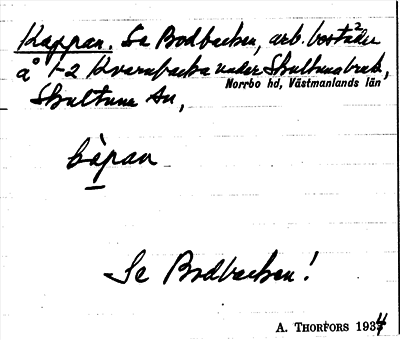 Kappan. Se Bodbacken, arb. bostäder
å 1-2 Kvarnbacka under Skultuna bruk,
Norrbo hd, Västmanlands län
Skultuna sn,
kàpan
Se Bodbacken!
A. Thorfors 1934